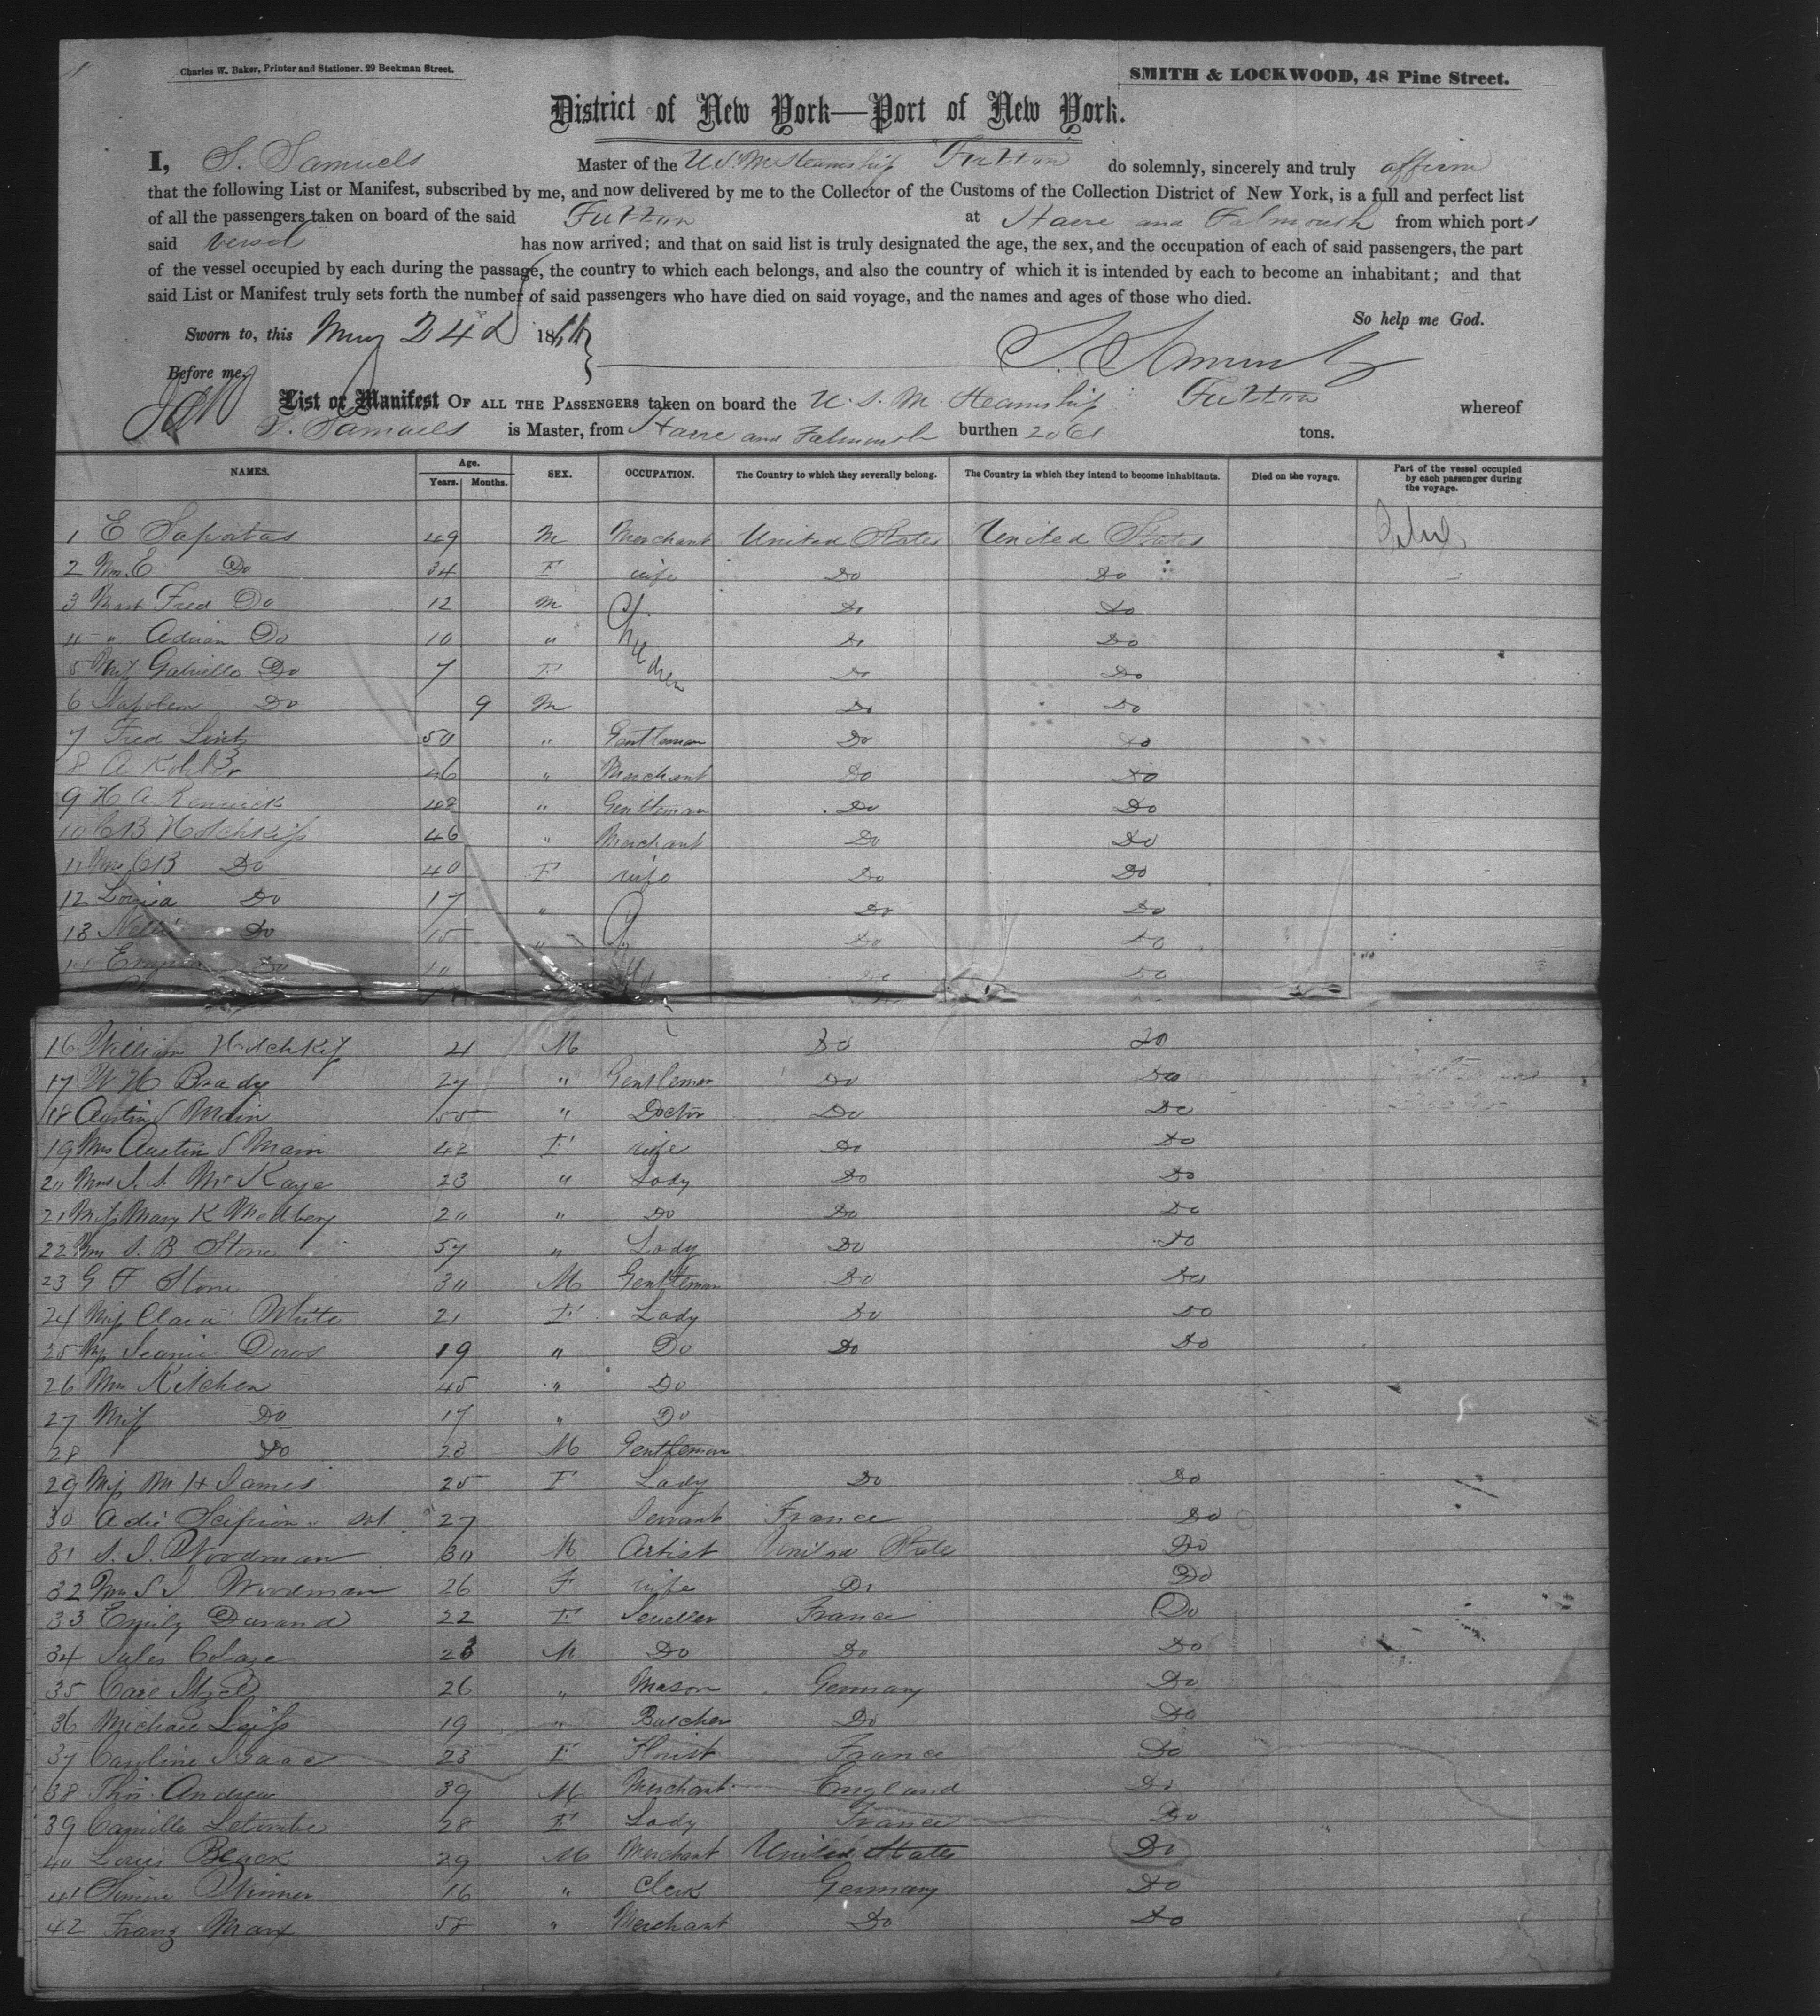 Charles W. Baker, Printer and Stationer. 29 Beekman Street.
SMITH & LOCKWOOD, 48 Pine Street.
District of New York—Port of New York.
I, S. Samuels Master of the U.S.M. Steamship Fulton do solemnly, sincerely and truly affirm
that the following List or Manifest, subscribed by me, and now delivered by me to the Collector of the Customs of the Collection District of New York, is a full and perfect list
of all the passengers taken on board of the said Fulton at Havre and Falmouth from which ports
said vessel has now arrived; and that on said list is truly designated the age, the sex, and the occupation of each of said passengers, the part
of the vessel occupied by each during the passage, the country to which each belongs, and also the country of which it is intended by each to become an inhabitant; and that
said List or Manifest truly sets forth the number of said passengers who have died on said voyage, and the names and ages of those who died.
So help me God.
Sworn to, this May 24d 1866
S. Samuels
Before me,
List or Manifest OF ALL THE PASSENGERS taken on board the U.S.M. Steamship Fulton whereof
S. Samuels is Master, from Havre and Falmouth burthen 2061 tons.
NAMES. Age. Years. Months. SEX. OCCUPATION. The Country to which they severally belong. The Country in which they intend to become inhabitants. Died on the voyage. Part of the vessel occupied by each passenger during the voyage.
1 E Sapatas 49 M Merchant United States United States
2 Mrs. E Do 34 F wife Do Do
3 Mast Fred Do 12 M Children Do Do
4 " Adrian Do 10 " Do Do
5 Miss Gabrielle Do 7 F Do Do
6 Napoleon Do 9 M Do Do
7 Fred Lintz 50 " Gentleman Do Do
8 A Kohler 46 " Merchant Do Do
9 H A Renwick " Gentleman Do Do
10 C B Hotchkiss 46 " Merchant Do Do
11 Mrs C B Do 40 F wife Do Do
12 Louisa Do 17 " Do Do
13 Nellie Do 15 " Do Do
14 Emma Do Do Do
16 William Hotchkiss 4 M Do Do
17 W H Brady 27 " Gentleman Do Do
18 Austin S Main 55 " Doctor Do Do
19 Mrs Austin S Main 42 F wife Do Do
20 Mrs S. S. McKaye 23 " Lady Do Do
21 Miss Mary K Medbery 20 " Do Do Do
22 Mrs S. B Stone 57 " Lady Do Do
23 G F Stone 30 M Gentleman Do Do
24 Miss Clara White 21 F Lady Do Do
25 Miss Jeanie Dows 19 " Do Do Do
26 Mrs Kitchen 45 " Do
27 Miss Do 17 " Do
28 Do 23 M Gentleman
29 Miss M H James 25 F Lady Do Do
30 Adie Scipion 27 Servant France Do
31 S. J. Woodman 30 M Artist United State Do
32 Mrs S J. Woodman 26 F wife Do Do
33 Emily Durand 22 F Jeweller France Do
34 Jules 23 M Do Do Do
35 Carl 26 " Mason Germany Do
36 Michael Leiss 19 " Butcher Do Do
37 Caroline Isaac 23 F Florist France Do
38 Andrew 39 M Merchant England Do
39 Camille Letombe 28 F Lady France Do
40 Louis Black 29 M Merchant United States Do
41 Simon 16 " Clerk Germany Do
42 Franz Marx 58 " Merchant Do Do